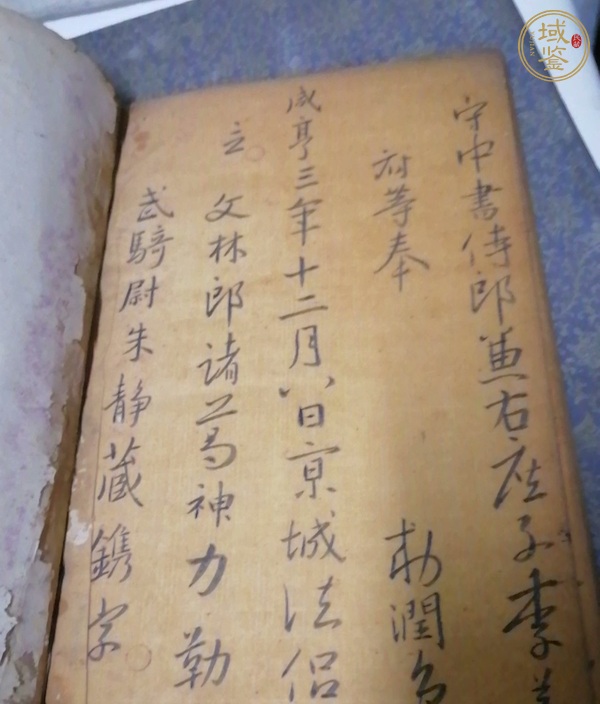 守中書侍郎兼右庶子李
府等奉
勅潤色
咸亨三年十二月八日京城法侶
立
文林郎諸葛神力勒
武騎尉朱静藏鐫字
域鑒